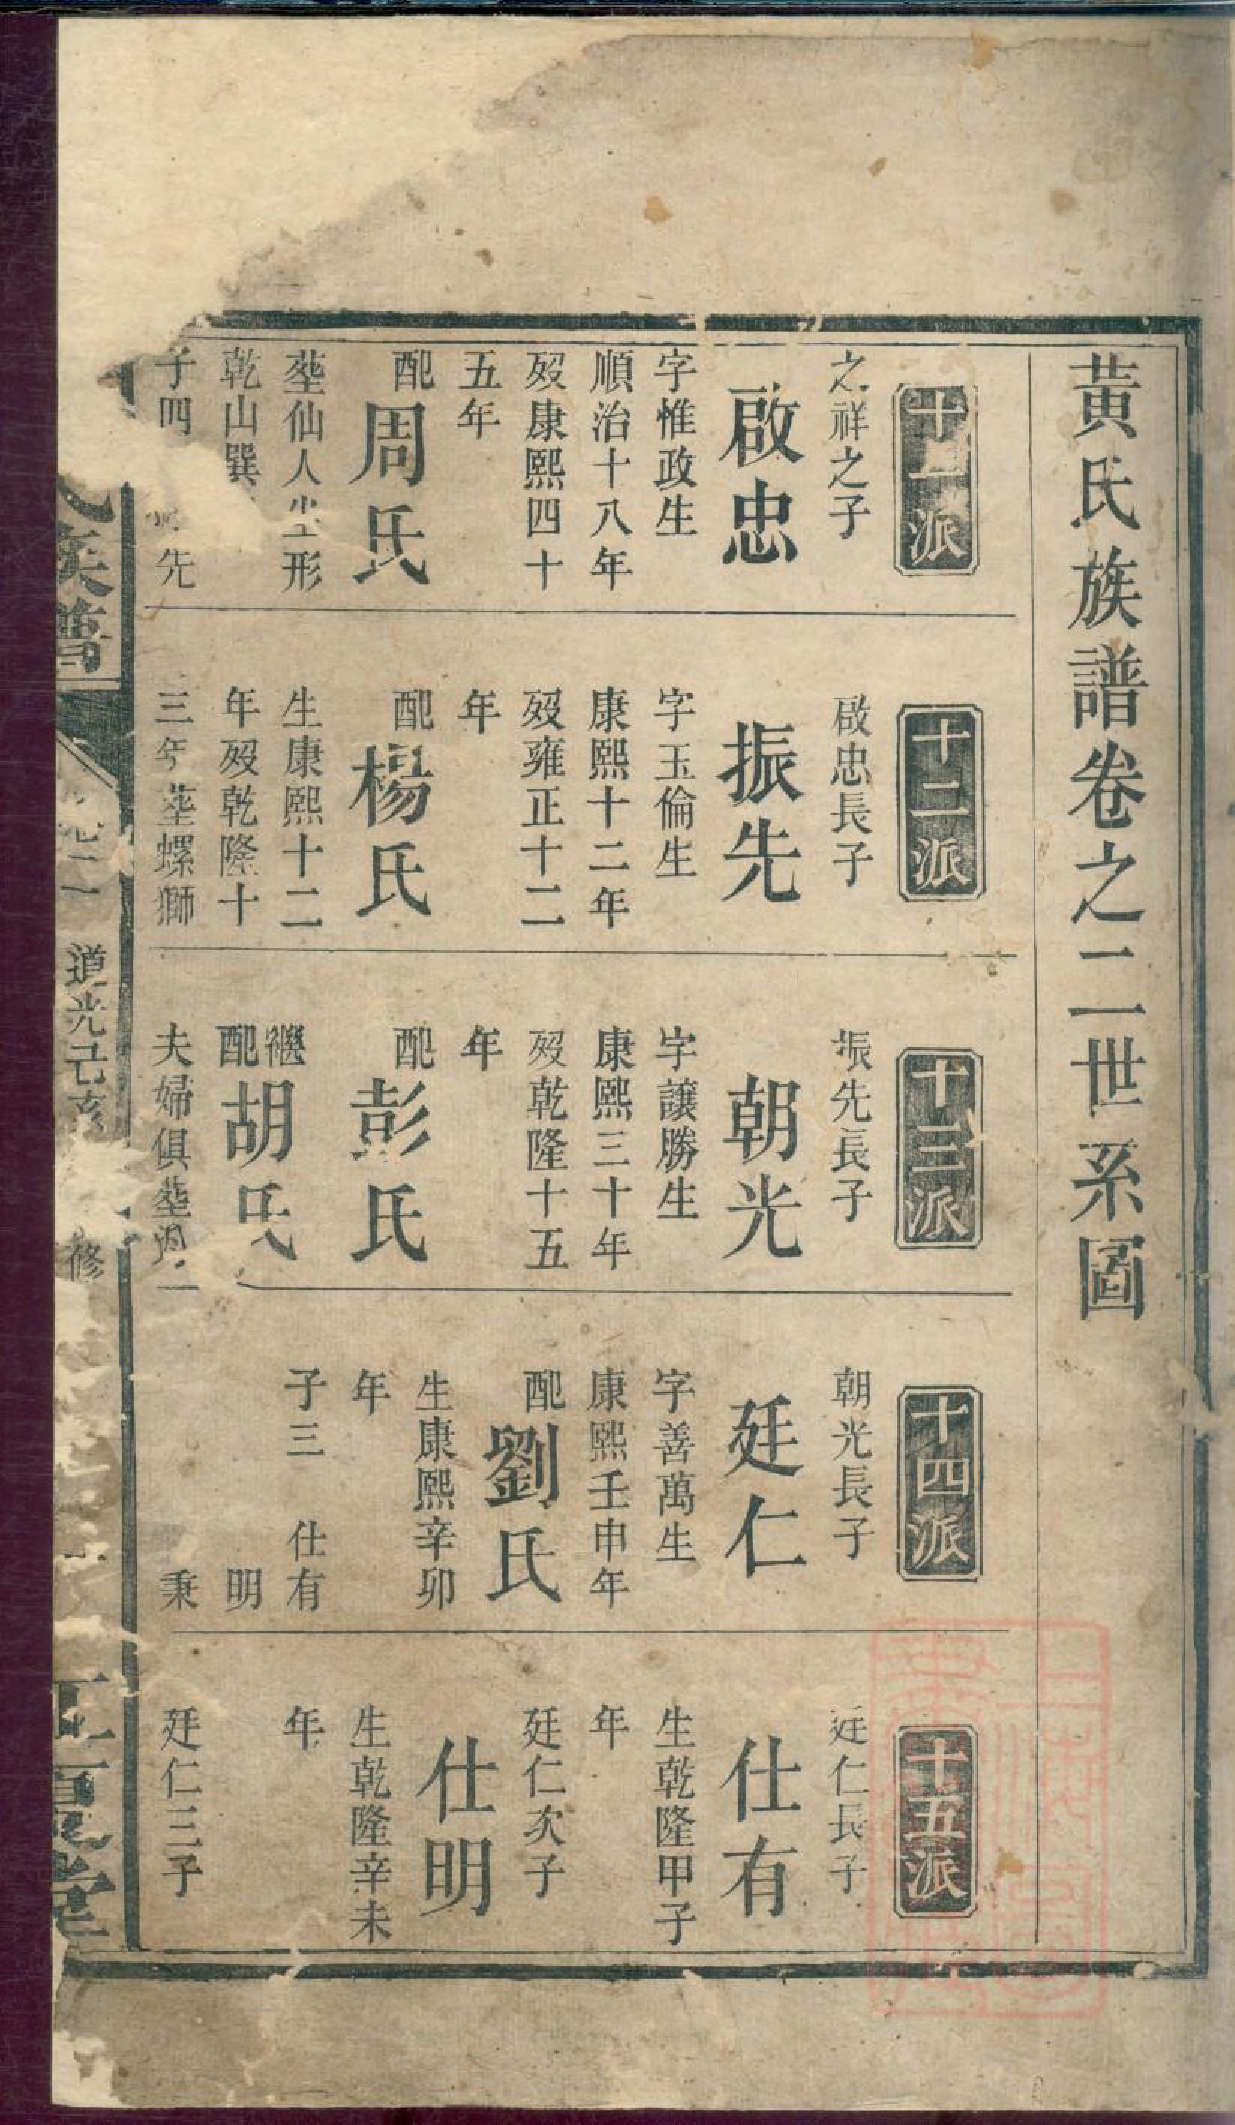 黃氏族譜卷之二世系圖
十一派
之祥之子
啟忠
字惟政生
順治十八年
歿康熙四十
五年
配周氏
塟仙人坐形
乾山巽
子四 先
十二派
啟忠長子
振先
字玉倫生
康熙十二年
歿雍正十二
年
配楊氏
生康熙十二
年歿乾隆十
三年塟螺獅
十三派
振先長子
朝光
字讓勝生
康熙三十年
歿乾隆十五
年
配彭氏
繼配胡氏
夫婦俱塟
十四派
朝光長子
廷仁
字善萬生
康熙壬申年
配劉氏
生康熙辛卯
年
子三 仕有
明
秉
十五派
廷仁長子
仕有
生乾隆甲子
年
廷仁次子
仕明
生乾隆辛未
年
廷仁三子
族譜
卷二
道光己亥 修
江夏堂